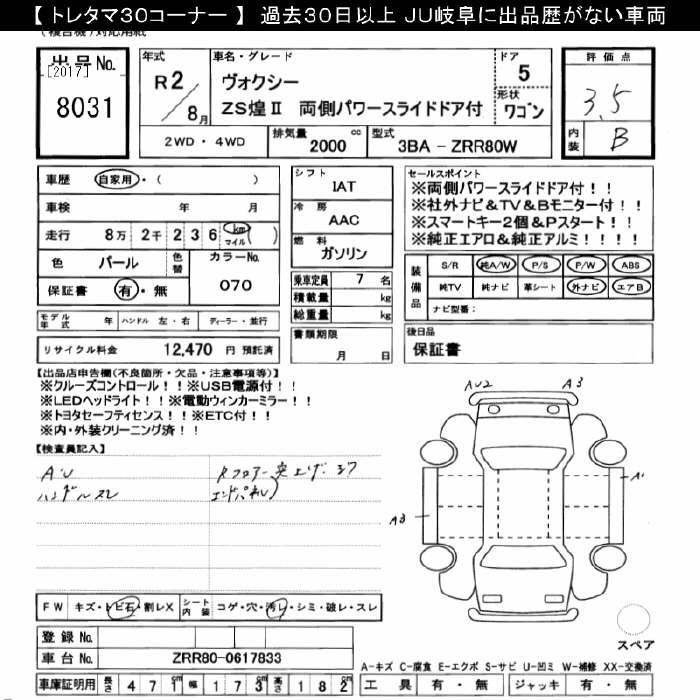 【 トレタマ30コーナー 】 過去30日以上 JU岐阜に出品歴がない車両
出品No.
[2017]
8031
年式
R2/8月
車名・グレード
ヴォクシー
ZS煌Ⅱ 両側パワースライドドア付
ドア
5
形状
ワゴン
評価点
3.5
内装
B
2WD・4WD
排気量
2000 cc
型式
3BA - ZRR80W
車歴 自家用・( )
車検 年 月
走行 8万 2千 2 3 6 km マイル ( )
色 パール
色替
カラーNo.
070
保証書 有・無
モデル年式 年 ハンドル 左・右 ディーラー・並行
リサイクル料金 12,470 円 預託済
シフト
IAT
冷房
AAC
燃料
ガソリン
乗車定員 7 名
積載量 kg
総重量 kg
書類期限
月 日
セールスポイント
※両側パワースライドドア付!!
※社外ナビ&TV&Bモニター付!!
※スマートキー2個&Pスタート!!
※純正エアロ&純正アルミ!!!!
装備品
S/R 純A/W P/S P/W ABS
純TV 純ナビ 革シート 外ナビ エアB
ナビ型番:
後日品
保証書
【出品店申告欄(不良箇所・欠品・注意事項等)】
※クルーズコントロール!!※USB電源付!!
※LEDヘッドライト!!※電動ウィンカーミラー!!
※トヨタセーフティセンス!!※ETC付!!
※内・外装クリーニング済!!
【検査員記入】
A・U
ハンドルスレ
AU2
A3
A1
A3
FW キズ・トビ石・割レX
シート内装 コゲ・穴・汚レ・シミ・破レ・スレ
登録No.
車台No. ZRR80-0617833
車庫証明用 長さ 4 7 1 幅 1 7 3 高さ 1 8 2
スペア
A-キズ C-腐食 E-エクボ S-サビ U-凹ミ W-補修 XX-交換済
工具 有・無 ジャッキ 有・無